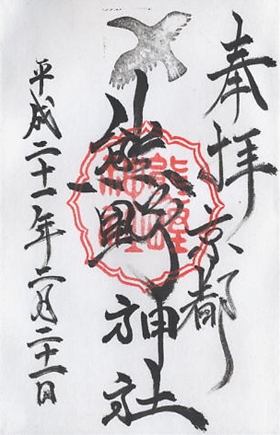 奉拝
京都
熊野神社
平成二十一年二月二十一日